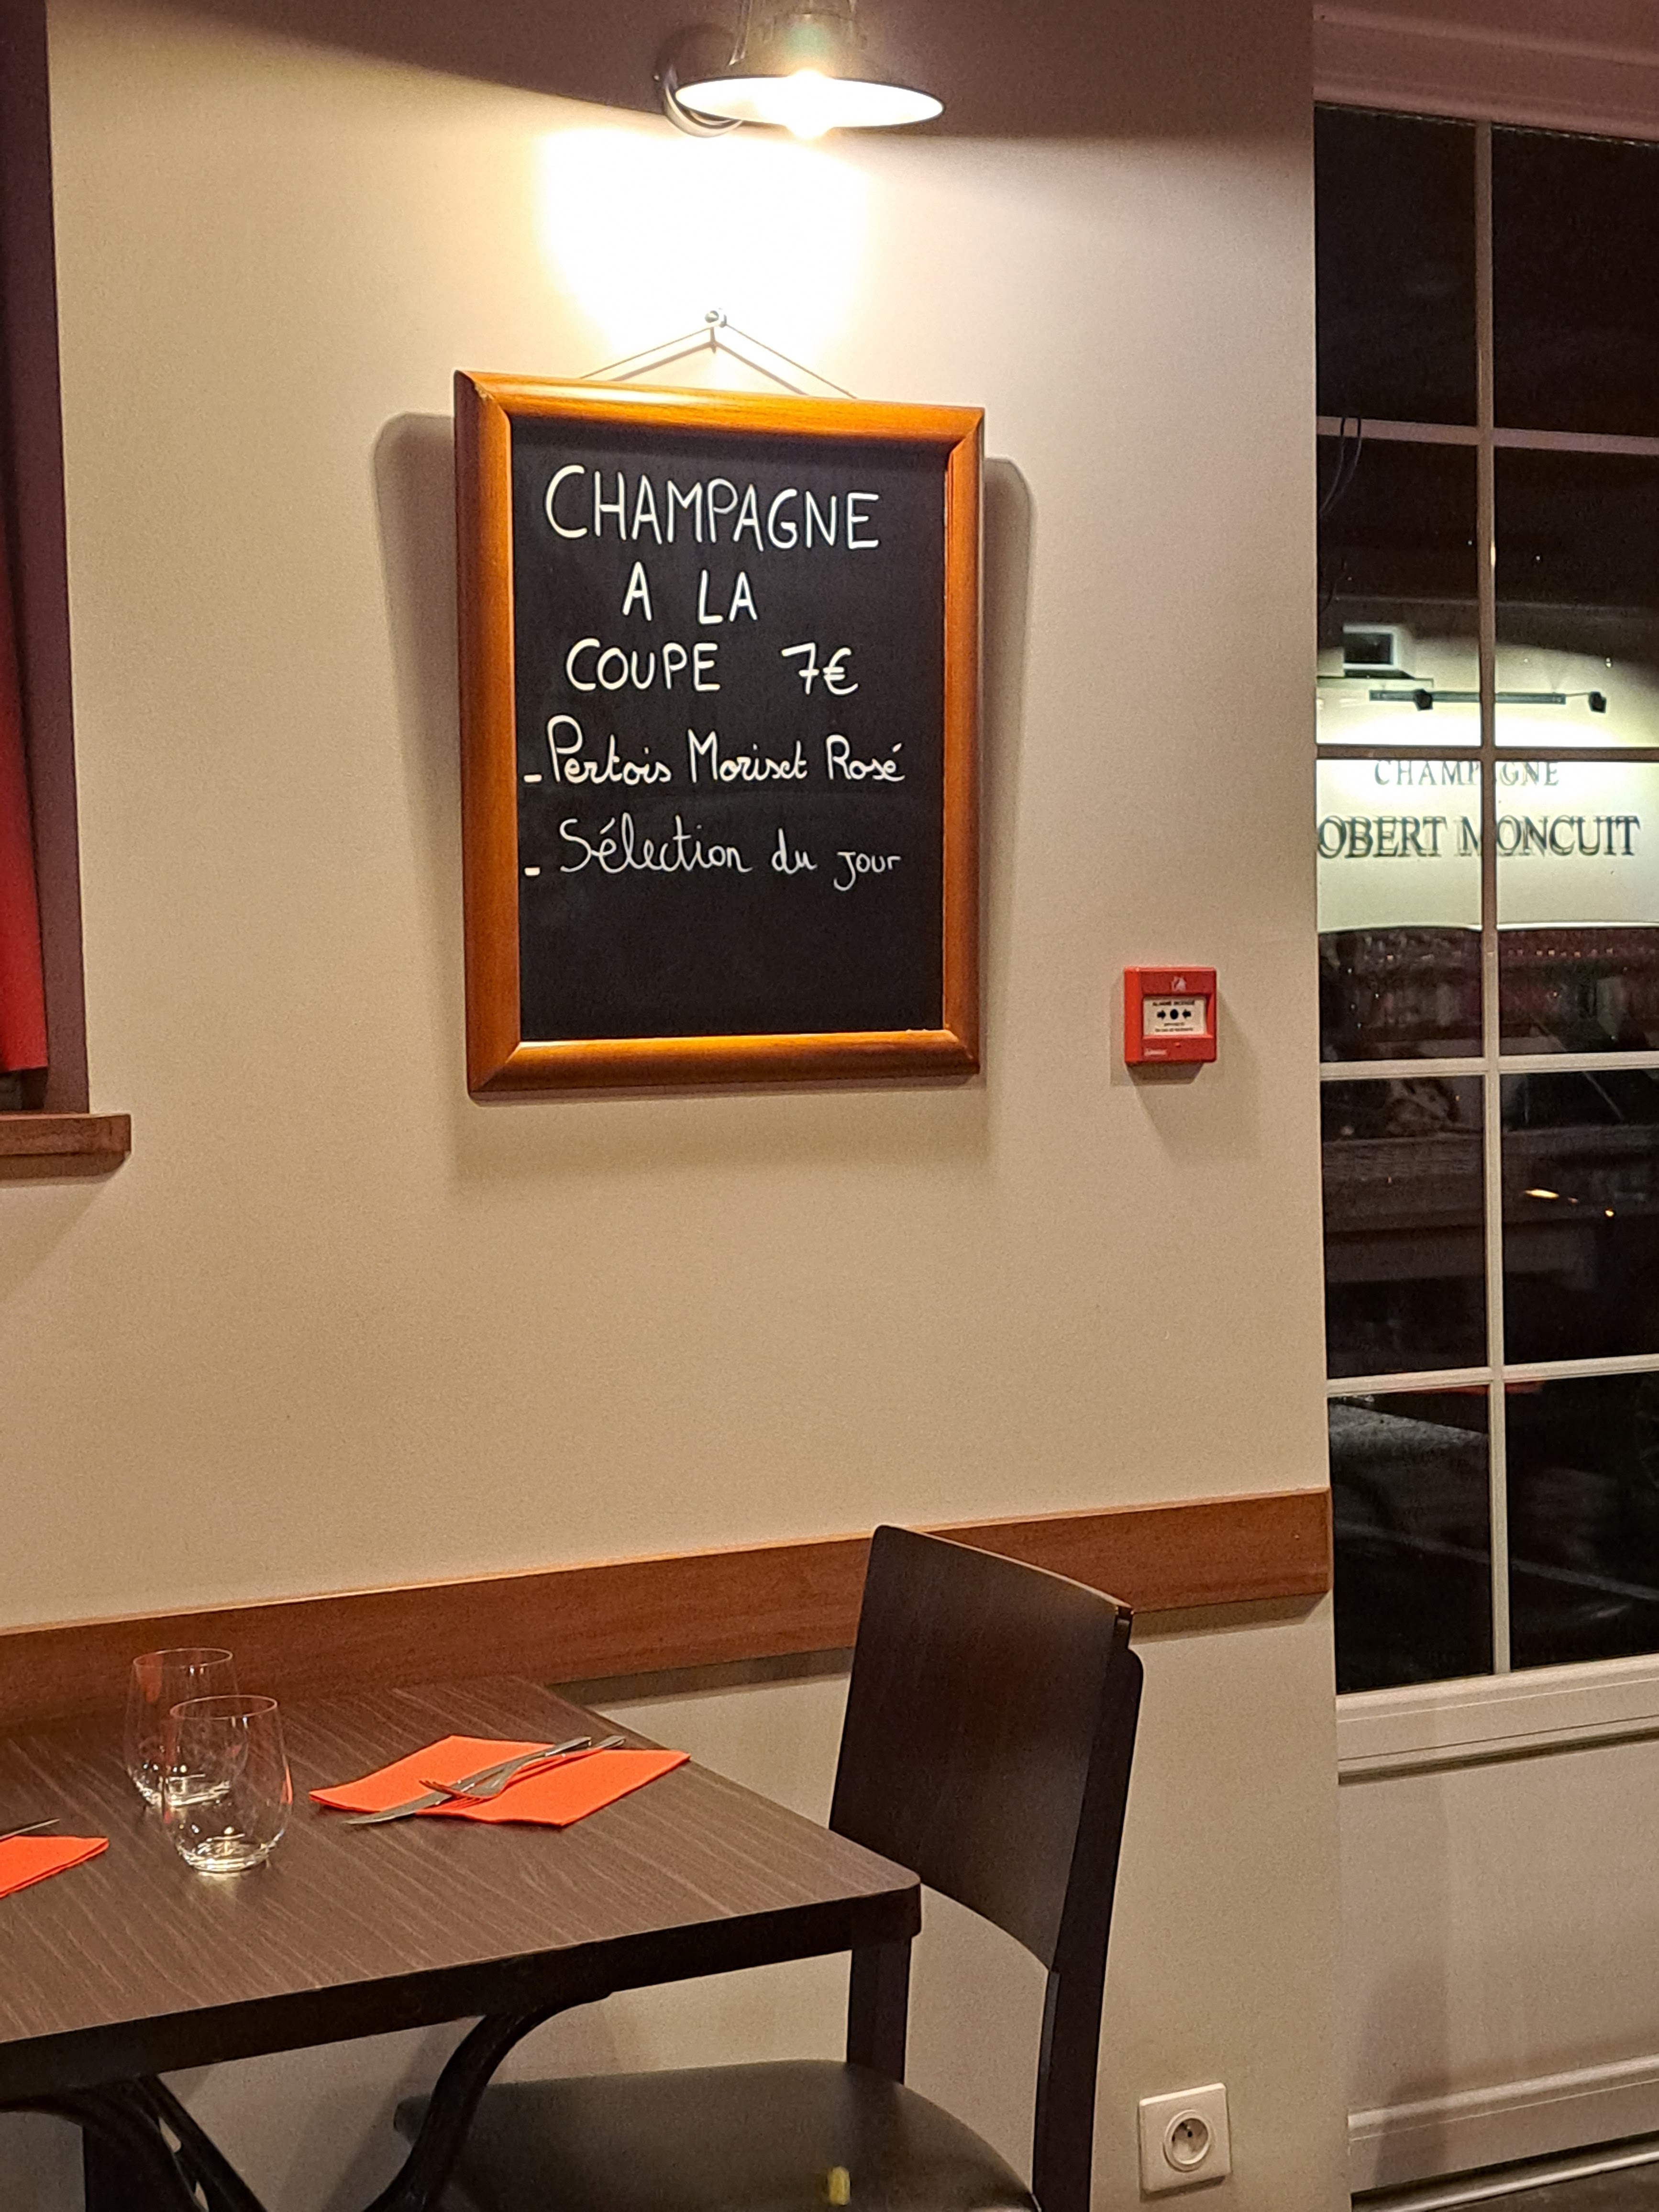 CHAMPAGNE
A LA
COUPE 7€
- Pertois Moriset Rosé
- Sélection du jour
CHAMPAGNE
OBERT MONCUIT
ALARME INCENDIE